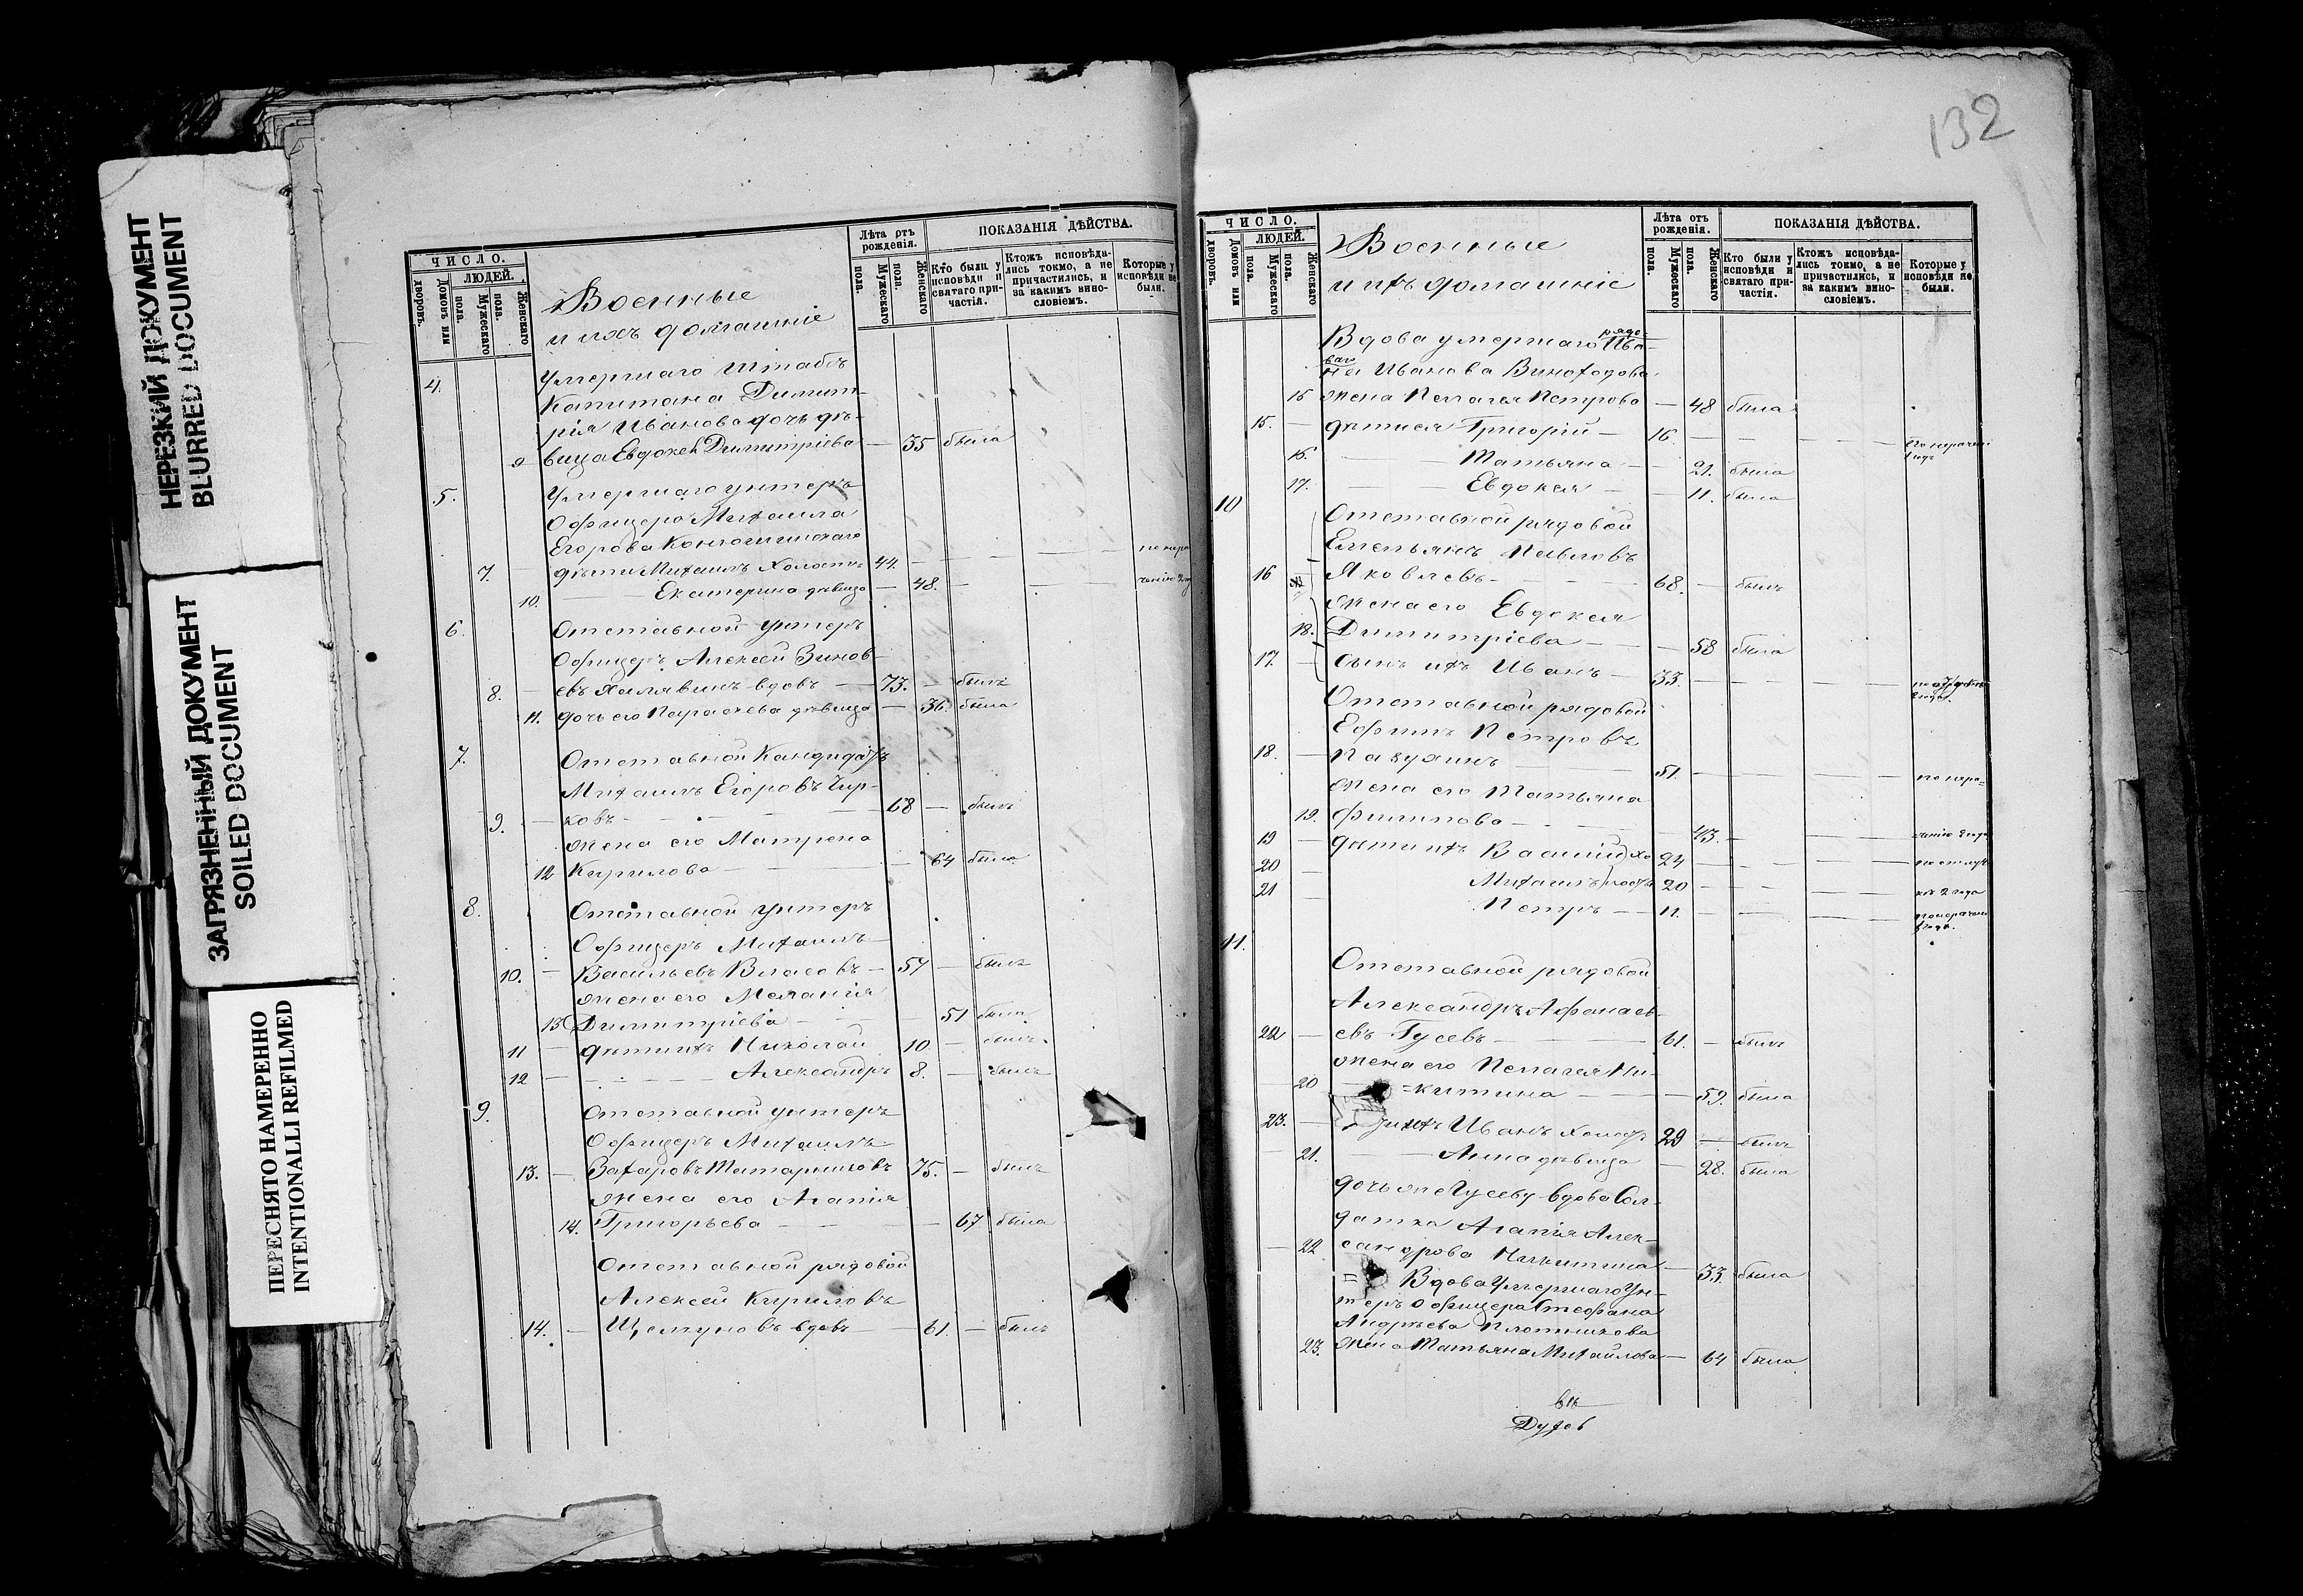 НЕРЕЗКИЙ ДОКУМЕНТ
BLURRED DOCUMENT
ЗАГРЯЗНЕННЫЙ ДОКУМЕНТ
SOILED DOCUMENT
ПЕРЕСНЯТО НАМЕРЕННО
INTENTIONALLI REFILMED
ЧИСЛО.
Домовъ или дворовъ.
ЛЮДЕЙ.
Мужескаго пола.
Женскаго пола.
Военные
и ихъ домашніе
Лѣта отъ рожденія.
Мужескаго пола.
Женскаго пола.
ПОКАЗАНІЯ ДѢЙСТВА.
Кто были у исповѣди и святаго причастія.
Ктожъ исповѣдались токмо, а не причастились, и за какимъ винословіемъ.
Которые у исповѣди не были.
4. Умершаго штабсъ
Капитана Димит-
рія Иванова дочь дѣ-
9 вица Евдокея Димитріева — 35 была
5. Умершаго унтеръ
Офицера Михаила
Егорова
7. — дѣти Михаилъ Холостъ 44. — — — по нера
10. — Екатерина дѣвица — 48. — — ченію
6. Отставной унтеръ
Офицеръ Алексей Зинов-
8. — евъ Халявинъ вдовъ — 73. — былъ
11. дочь его Параскева дѣвица — 36. была
7. Отставной Кандидатъ
Михаилъ Егоровъ Чир-
9. — ковъ — — — 68 — былъ
жена его Матрена
12 Кирилова — — — 64 была
8. Отставной унтеръ
Офицеръ Михаилъ
10. — Васильевъ Власовъ — 57 — былъ
жена его Меланія
13 Димитріева — — — 51 была
11 — дѣти ихъ Николай 10 — былъ
12 — — Александръ 8. — былъ
9. Отставной унтеръ
Офицеръ Михаилъ
13. — Захаровъ Татарниковъ 75. — былъ
жена его Агапія
14. Григорьева — — — 67 была
Отставной рядовой
Алексей Кириловъ
14. — вдовъ — 61. — былъ
132
ЧИСЛО.
Домовъ или дворовъ.
ЛЮДЕЙ.
Мужескаго пола.
Женскаго пола.
Военные
и ихъ домашніе
Лѣта отъ рожденія.
Мужескаго пола.
Женскаго пола.
ПОКАЗАНІЯ ДѢЙСТВА.
Кто были у исповѣди и святаго причастія.
Ктожъ исповѣдались токмо, а не причастились, и за какимъ винословіемъ.
Которые у исповѣди не были.
Вдова умершаго рядо-
ваго Ива-
на Иванова Виноходова
15 жена Пелагея Петрова — 48 была
15. — Григорій — 16. — — —
16. — Татьяна — 21. была
17. — Евдокея — 11. была
10 Отставной рядовой
Емельянъ Павловъ
16 — Яковлевъ — — 68. — былъ
жена его Евдокея
18. Димитріева — — 58 была
17. — сынъ ихъ Иванъ — 33. — — —
Отставной рядовой
Ефимъ Петровъ
18. — Пазухинъ — 51. — — — по нера-
жена его Татьяна
19. Филипова — — 43. — — ченію
19 — дѣти ихъ Василій хо 24 — — —
20 — Михаилъ лосты 20 — — —
21 — Петръ — 11. — — —
11. Отставной рядовой
Александръ Афанась-
22 — евъ Гусевъ — — 61. — былъ
жена его Пелагея Ни-
20 =китина — — — 59. была
23. — ихъ Иванъ Холостъ 29 — былъ
21. — Анна дѣвица — 28. была
дочь же Гусеву вдова Сол-
датка Агапія Алек-
22 сандрова Никитина — 33. была
Вдова Умершаго Ун-
теръ Офицера Стефана
Андреева Плотникова
23. жена Татьяна Михайлова — 64 была
въ
Духов